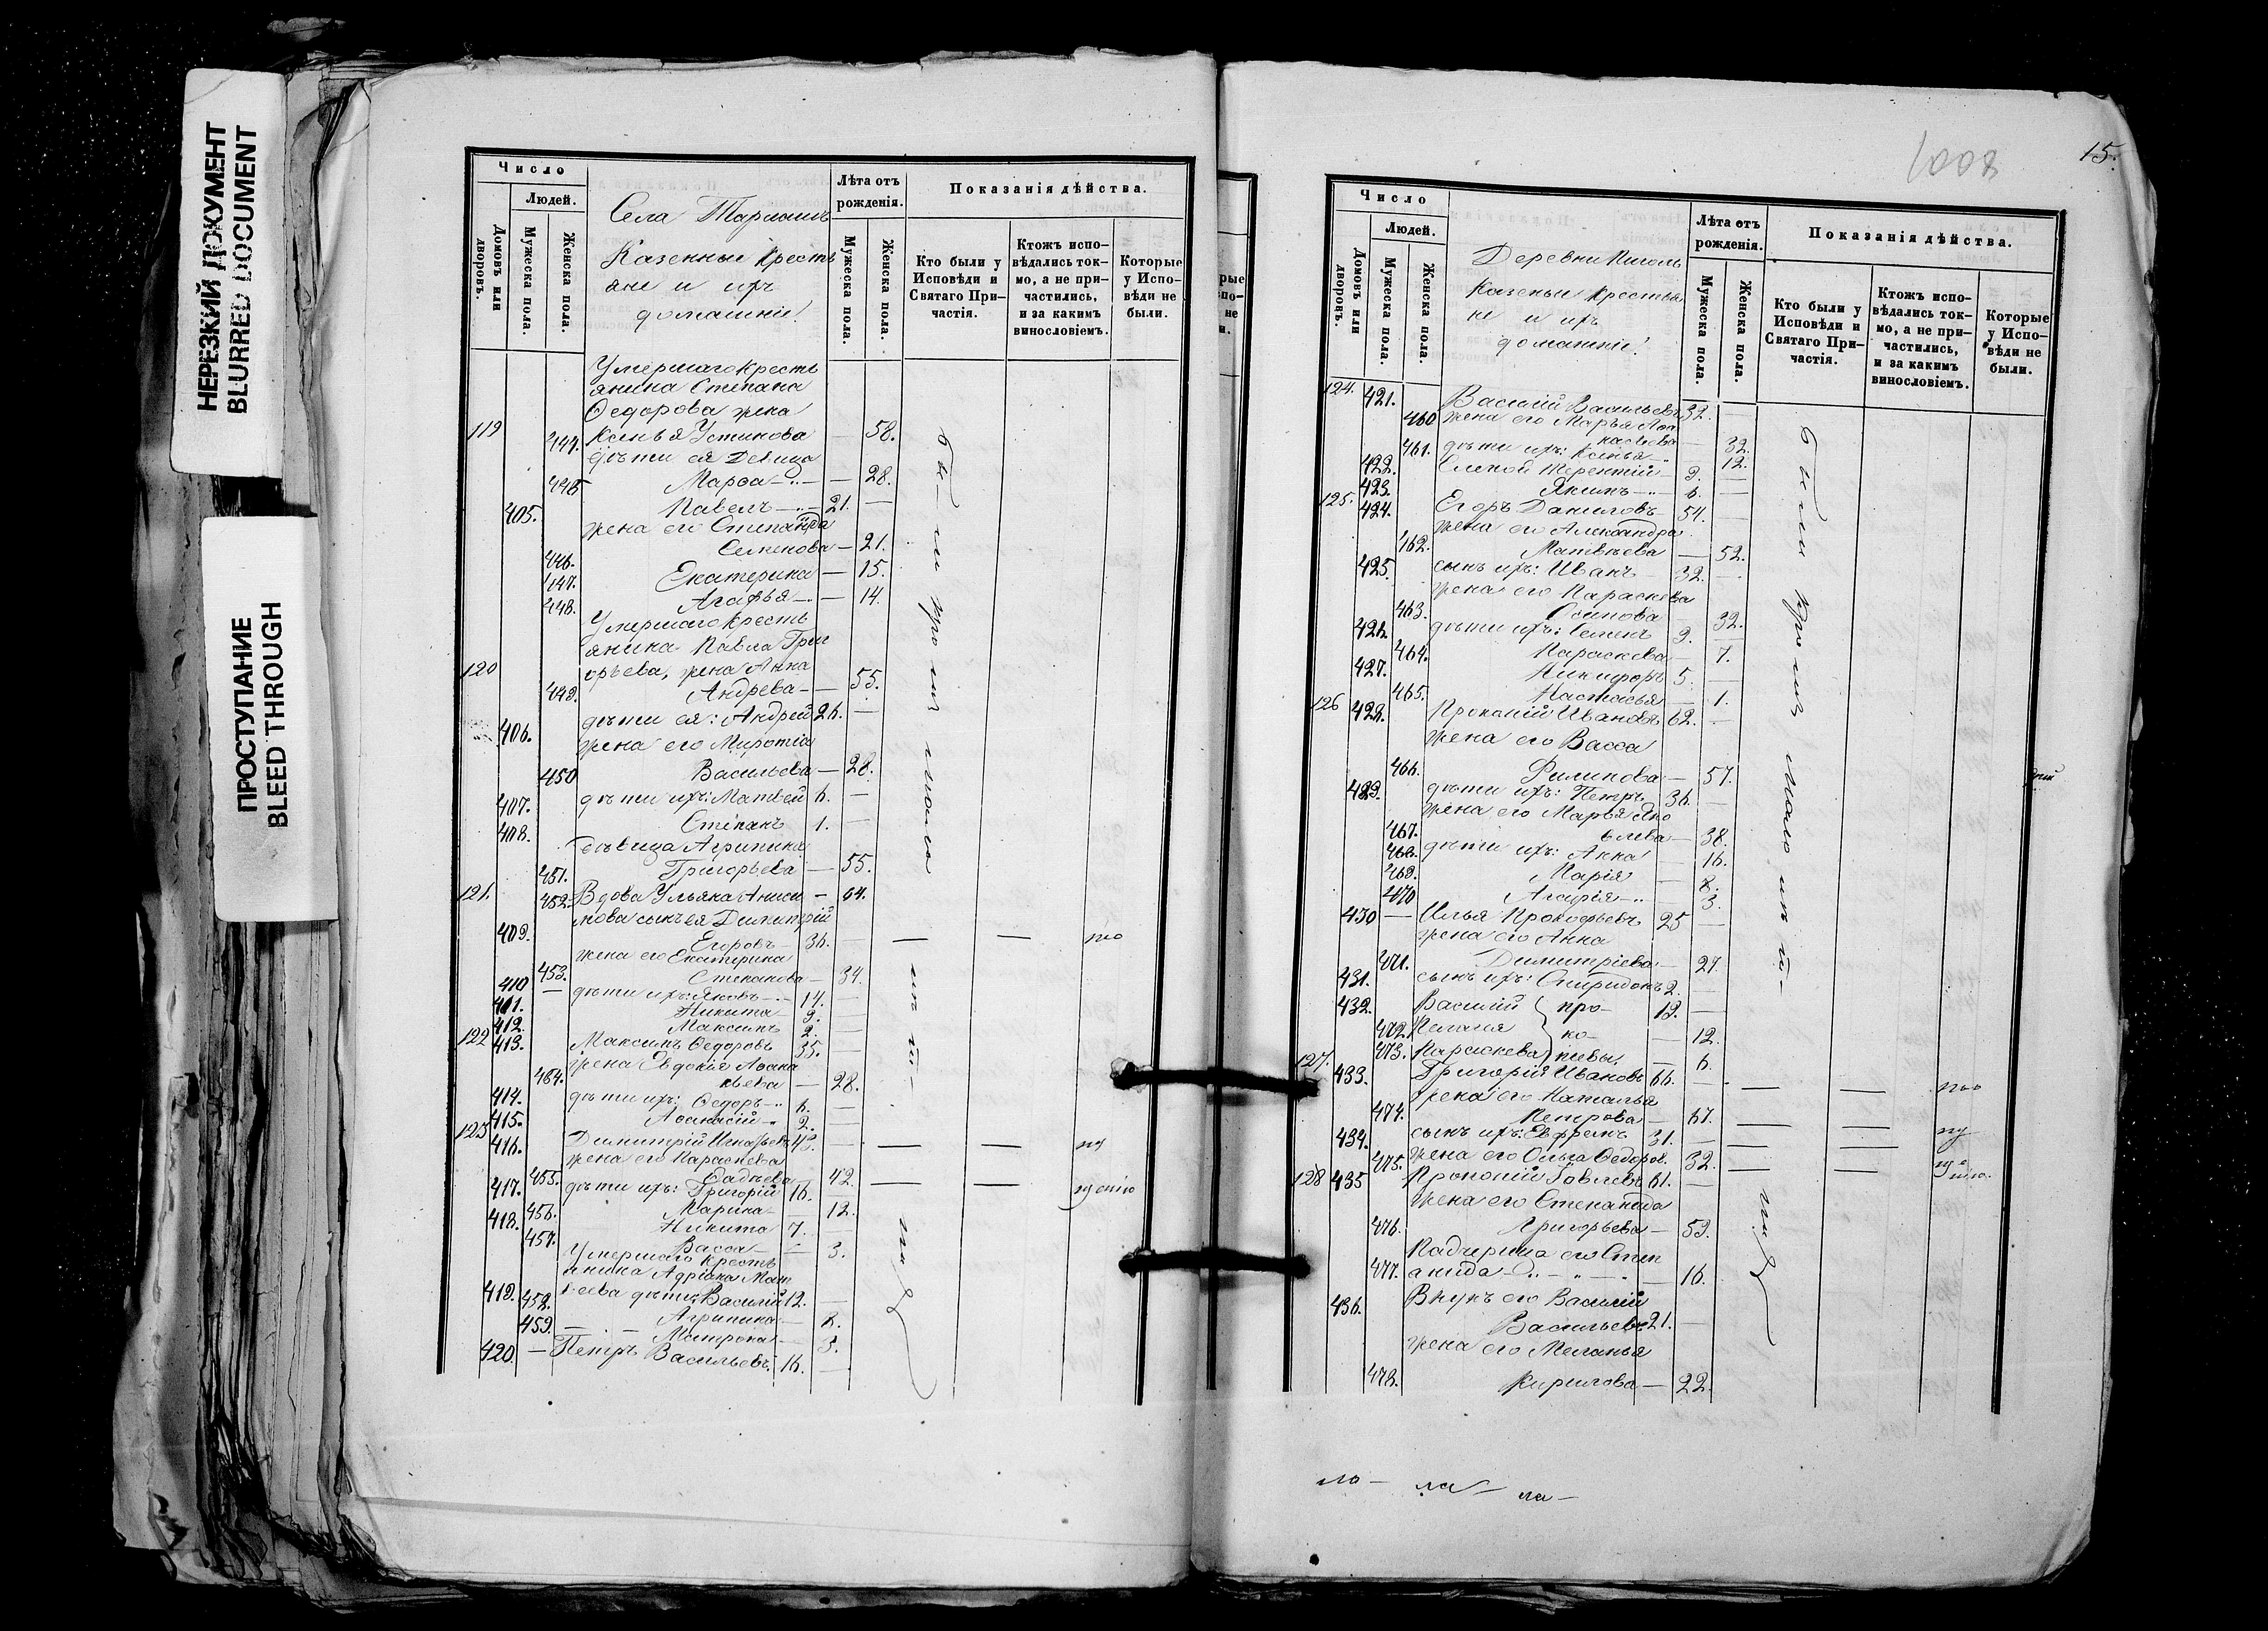 НЕРЕЗКИЙ ДОКУМЕНТ
BLURRED DOCUMENT
ПРОСТУПАНИЕ
BLEED THROUGH
Число
Людей.
Домовъ или дворовъ.
Мужеска пола.
Женска пола.
Села
Казенныи Кресть
ане и ихъ
домашніи
Лѣта отъ рожденія.
Мужеска пола.
Женска пола.
Показанія дѣйства.
Кто были у Исповѣди и Святаго Причастія.
Ктожъ исповѣдались токмо, а не причастились, и за какимъ винословіемъ.
Которые у Исповѣди не были.
Умершаго Кресть
янина Степана
Ѳедорова жена
119 444. Ксенья Устинова — 58.
дѣти ея девица
445 Марѳа — 28.
405. Павелъ 21. —
жена его Степанида
446. Семенова — 21.
447. Екатерина — 15.
448. Агафья — 14.
Умершаго Кресть
янина Павла Григ
120 орьева, жена Анна
449. Андрева — 55.
406. дѣти ея: Андрей 26. —
жена его
450 Васильева — 28.
407. дѣти ихъ: Матвей 6. —
408. Степанъ 1. —
девица Агрипина
451. Григорьева — 55.
121. 452. Вдова Ульяна Аниси — 64.
мова сынъ ея Димитрій
409. Егоровъ 36. —
жена его Екатерина
453. Степанова — 34.
410 дѣти ихъ: Яковъ 14. —
411. Никита 9. —
412. Максимъ 2. —
122 413. Максимъ Ѳедоровъ 35. —
жена Евдокія Аѳана
454. сьева — 28.
414. дѣти ихъ: Ѳедоръ 6. —
415. Аѳанасій 2. —
123 416. Димитрій 43. —
жена его Параскева
455. — 42.
417. дѣти ихъ: Григорій 16. —
456. Марина — 12.
418. Никита 7.
457. Васса — 3.
Умершаго Кресть
янина Адріана Мат
419. вѣева дѣти: Василій 12. —
458. Агрипина — 8.
459. Матрона — 3.
420. Петръ Васильевъ 16. —
были
15.
Число
Людей.
Домовъ или дворовъ.
Мужеска пола.
Женска пола.
Деревни
Казеные Крестья
не и ихъ
домашніи
Лѣта отъ рожденія.
Мужеска пола.
Женска пола.
Показанія дѣйства.
Кто были у Исповѣди и Святаго Причастія.
Ктожъ исповѣдались токмо, а не причастились, и за какимъ винословіемъ.
Которые у Исповѣди не были.
124. 421. Василій Васильевъ 32. —
460 жена его Марья Аѳа
насьева — 32.
461. дѣти ихъ: Ксенья — 12.
422. Терентій 9. —
423. Якимъ 6. —
125. 424. Егоръ Даниловъ 54. —
жена его Александра
462. Матвѣева — 52.
425. сынъ ихъ: Иванъ 32. —
жена его Параскева
463. Осипова — 32.
426. дѣти ихъ: Семенъ 9. —
464. Параскева — 7.
427. Никифоръ 5. —
465. Настасья — 1.
126 428. Прокопій Ивановъ 62. —
жена его Васса
466. Филипова — 57.
429. дѣти ихъ: Петръ 36. —
жена его Марья Яко
467. влева — 38.
468. дѣти ихъ: Анна — 16.
469. Марія — 8.
470 — 3.
430 — Илья Прокофьевъ 25 —
жена его Анна
471. Димитріева — 27.
431. сынъ ихъ: Спиридонъ 2. —
432. Василій про- 19. —
472. Пелагия ко- — 12.
473. Параскева пьевы. — 6.
127. 433. Григорій Ивановъ 66. —
жена его Наталья
474. Петрова — 67.
434. сынъ ихъ: Ефремъ 31. —
475. жена его Ольга Ѳедоров. 32.
128 435 Прокопій 61. —
жена его Степанида
476. Григорьева — 59.
Падчерица его Степ
477. анида — 16.
436. Внукъ его Василій
Васильевъ 21. —
жена его Меланья
478. Кирилова — 22.
были